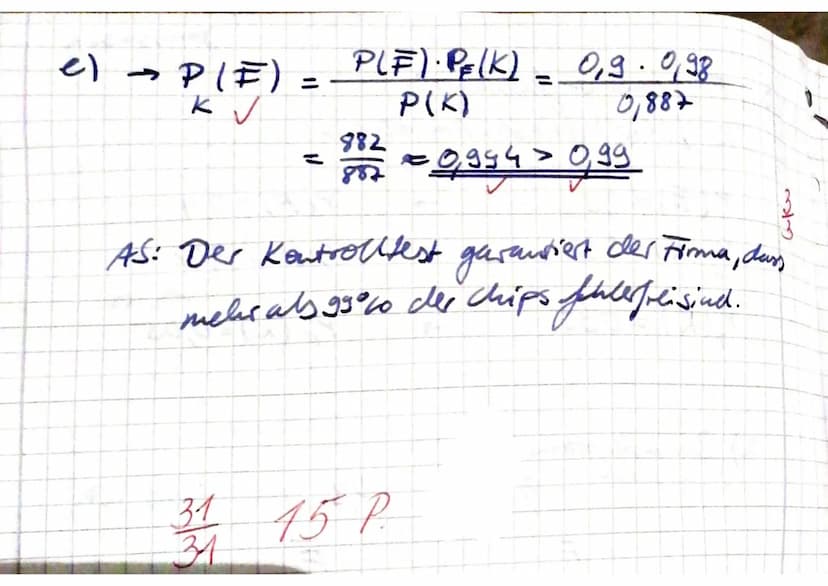 e) → P_K(F̅) = P(F̅)·P_F̅(K) / P(K) = 0,9 · 0,98 / 0,887
= 882/887 ≈ 0,994 > 0,99
3/3
AS: Der Kontrolltest garantiert der Firma, dass
mehr als 99% der Chips fehlerfrei sind.
31/31 15 P.